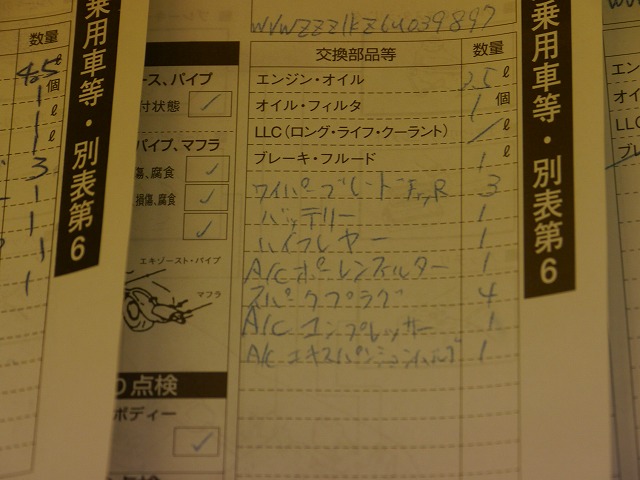 数量
4.5 ℓ
1 個
1 ℓ
1 ℓ
3
1
1
1
1
乗用車等・別表第6
ース、パイプ
付状態 ✓
パイプ、マフラ
傷、腐食 ✓
損傷、腐食 ✓
✓
エキゾースト・パイプ
マフラ
点検
ボディー
✓
点検
WVWZZZ1KZ6U039897
交換部品等 数量
エンジン・オイル 5 ℓ
オイル・フィルタ 1 個
LLC(ロング・ライフ・クーラント) ℓ
ブレーキ・フルード 1 ℓ
ワイパーブレード R 3
バッテリー 1
ハイフレヤー 1
A/Cポーレンフィルター 1
スパークプラグ 4
A/Cコンプレッサー 1
A/Cエキスパンションバルブ 1
乗用車等・別表第6
エン
オイ
LLC
ブレ